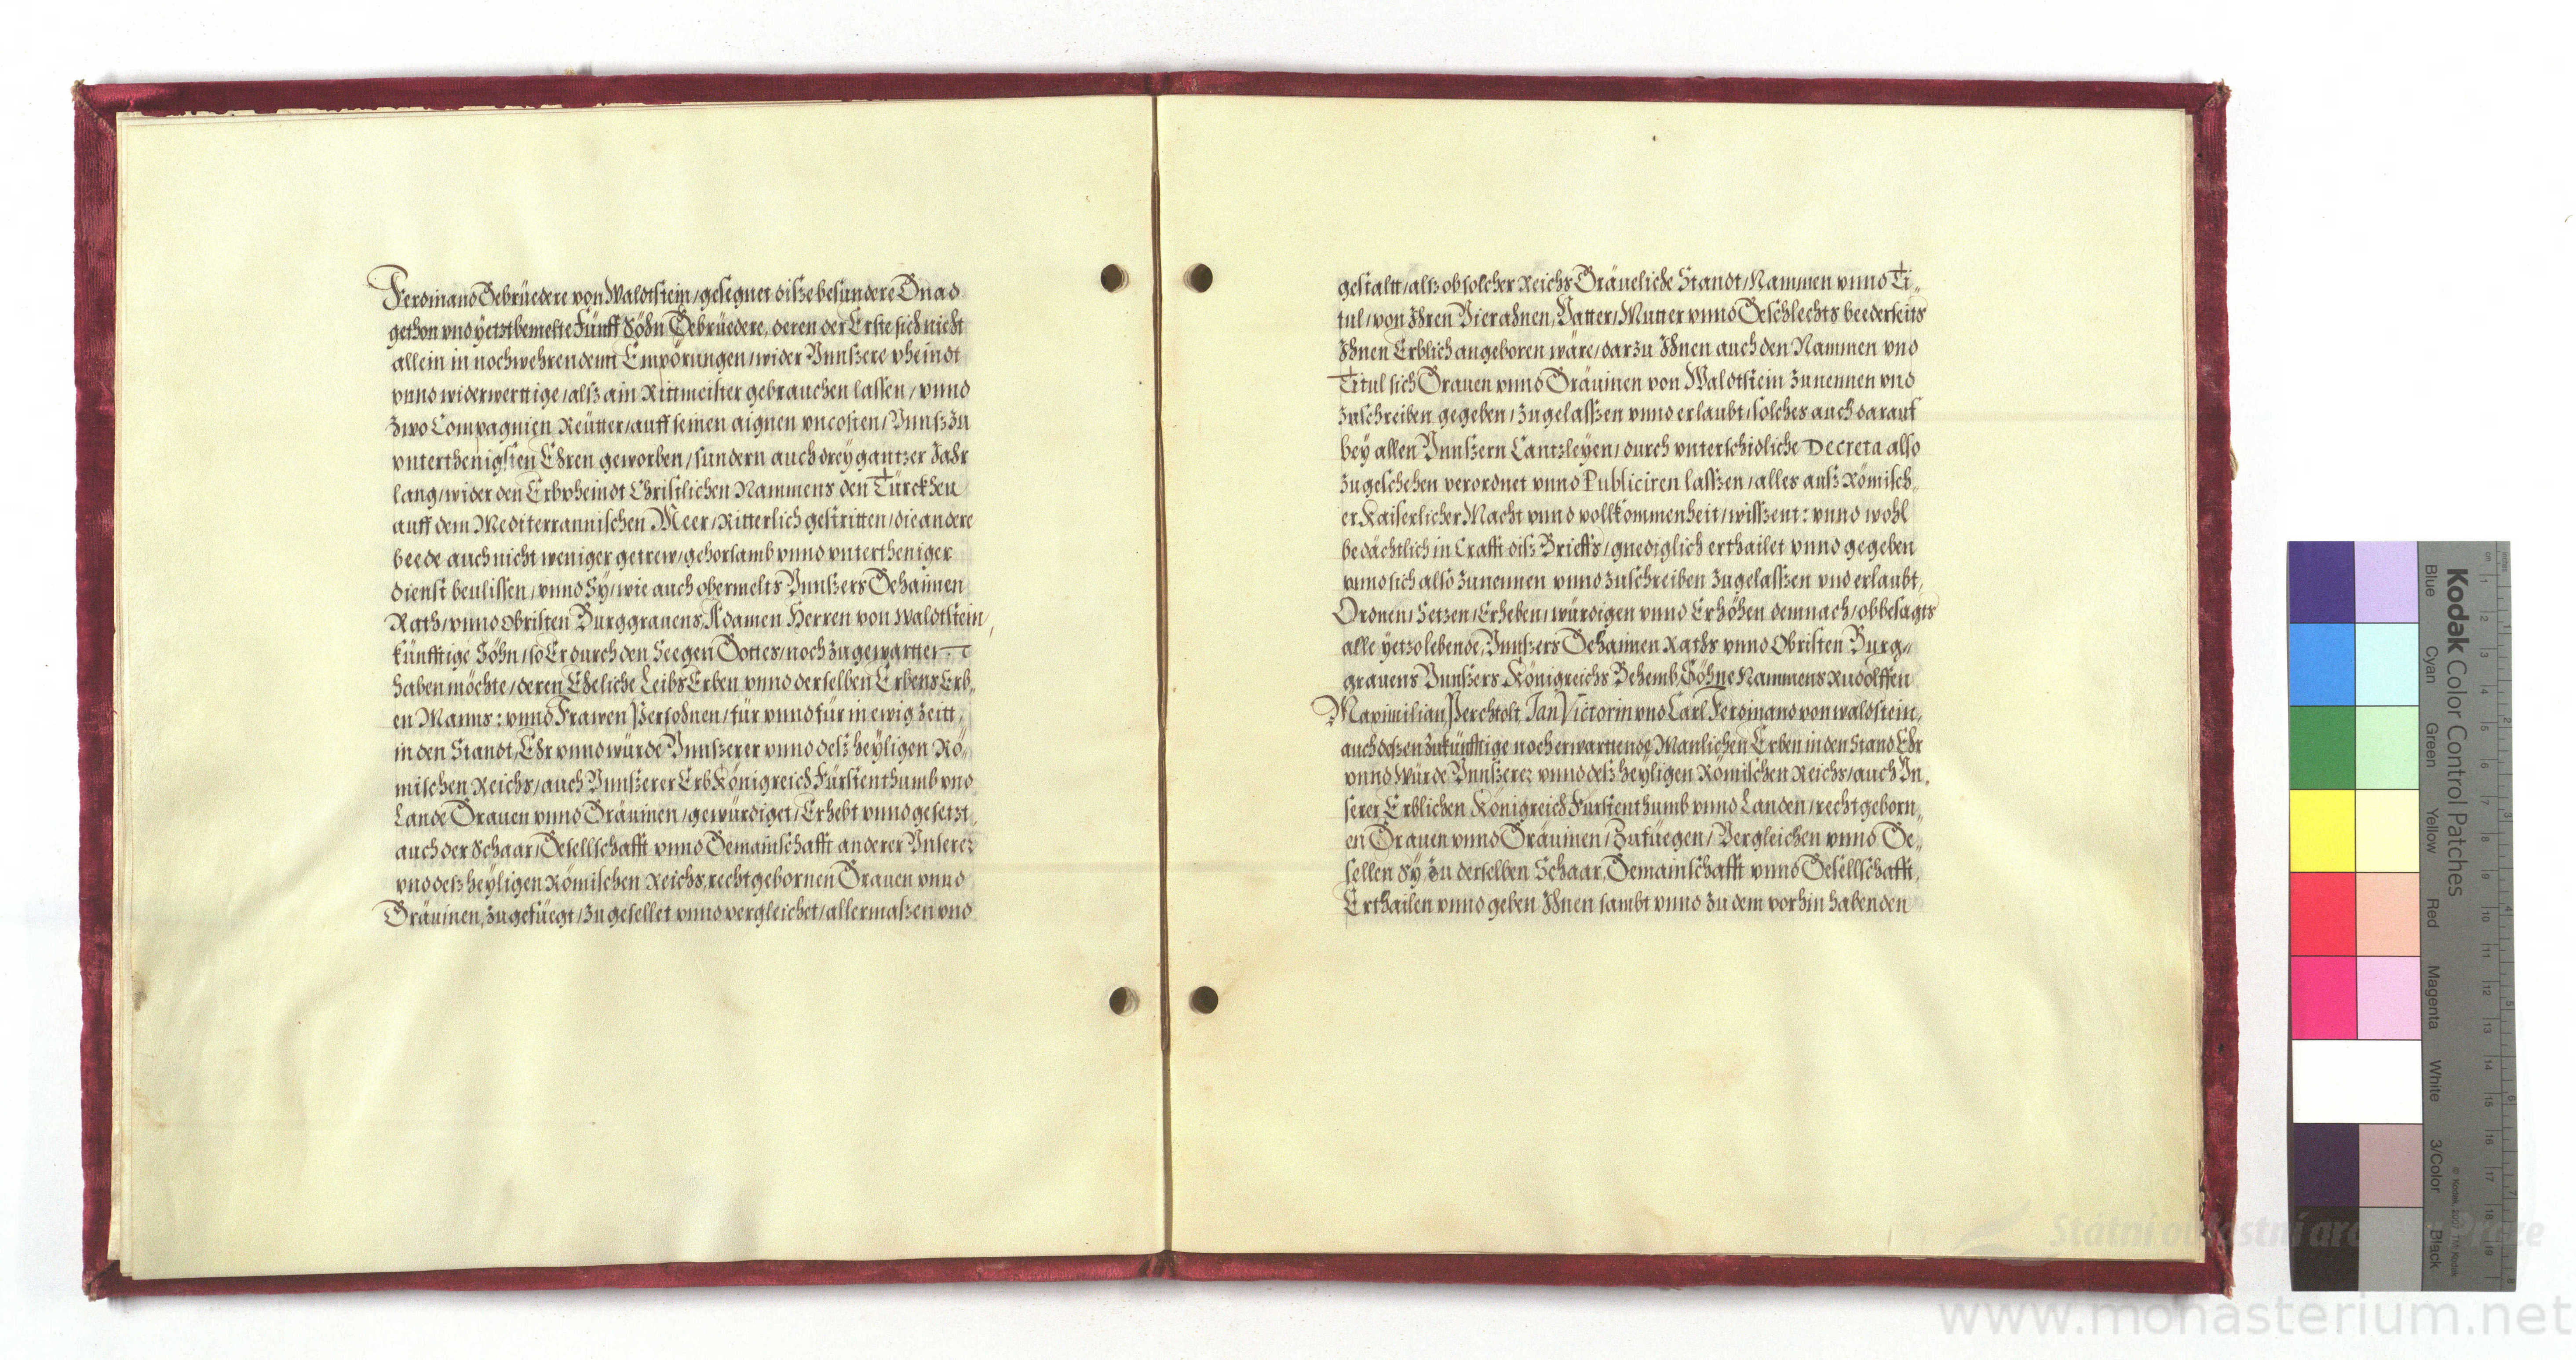 Ferdinand Gebrüedere von Waldtstein / gesegnet disze besundere Gnad
gethon vnd yetztbemelte Fünff Söhn Gebrüedere, deren der Erste sich nicht
allein in noch wehrendenn Empörungen / wider Vnnszere pheindt
vnnd widerwerttige / alsz ain Rittmeister gebrauchen lassen / vnnd
zwo Compagnien Reütter / auff seinen aignen vncosten / Vnnsz zu
vnterthenigsten Ehren geworben / sundern auch drey gantzer Jahr
lang / wider den Erbpheindt Christlichen Nammens den Türckhen
auff dem Mediterrannischen Meer / Ritterlich gestritten / die andere
beede auch nicht weniger getrew / gehorsamb vnnd vntertheniger
dienst beulissen / vnnd Sy / wie auch obermelts Vnnszers Gehaimen
Rath / vnnd Obristen Burggrauens, Adamen Herren von Waldtstein /
künfftige Söhn / so Er durch den Seegen Gottes / noch zugewartten
haben möchte / deren Eheliche Leibs Erben vnnd derselben Erbens Erb„
en Manns: vnnd Frawen Persohnen / für vnnd für in ewig zeitt,
in den Standt, Ehr vnnd würde Vnnszerer vnnd desz heyligen Rö„
mischen Reichs / auch Vnnszerer Erb Königreich Fürstenthumb vnd
Lande Grauen vnnd Gräuinen / gewürdiget / Erhebt vnnd gesetzt,
auch der Schaar / Gesellschafft vnnd Gemainschafft anderer Vnserer
vnd desz heyligen Römischen Reichs, recht gebornen Grauen vnnd
Gräuinen, zugefüegt / zu gesellet vnnd vergleichet / allermaszen vnd
gestaltt / alsz ob solcher Reichs Gräueliche Standt / Nammen vnnd Ti„
tul / von Ihren Vier Ahnen, Vatter / Mutter vnnd Geschlechts beederseits
Ihnen Erblich angeboren wäre / darzu Ihnen auch den Nammen vnd
Titul sich Grauen vnnd Gräuinen von Waldtstein zunennen vnd
zuschreiben gegeben / zugelasszen vnnd erlaubt / solches auch darauf
bey allen Vnnszern Cantzleyen / durch vnterschidliche Decreta also
zugeschehen verordnet vnnd Publiciren lasszen / alles ausz Römisch„
er Kaiserlicher Macht vnnd vollkommenheit / wisszent: vnnd wohl
bedächtlich in Crafft disz Brieffs / gnediglich erthailet vnnd gegeben
vnnd sich also zunennen vnnd zuschreiben zugelasszen vnd erlaubt,
Ordnen / Setzen / Erheben / würdigen vnnd Erhöhen demnach / obbesagts
alle yetzo lebende, Vnnszers Gehaimen Raths vnnd Obristen Burg„
grauens Vnnszers Königreichs Behemb Söhne Nammens Rudolffen
Maximilian, Perchtolt, Jan Victorin vnd Carl Ferdinand von waldstein,
auch deszen zukünfftige noch erwartende Manlichen Erben in den Stand Ehr
vnnd Würde Vnnszerer vnnd desz heyligen Römischen Reichs / auch Vn„
serer Erblichen Königreich Furstenthumb vnnd Landen / recht geborn„
en Grauen vnnd Gräuinen / Zufüegen / Vergleichen vnnd Ge„
sellen Sy zu derselben Schaar, Gemainschafft vnnd Gesellschafft,
Erthailen vnnd geben Ihnen sambt vnnd zu dem vorhin habenden
Kodak Color Control Patches
Blue Cyan Green Yellow Red Magenta White 3/Color Black
www.monasterium.net